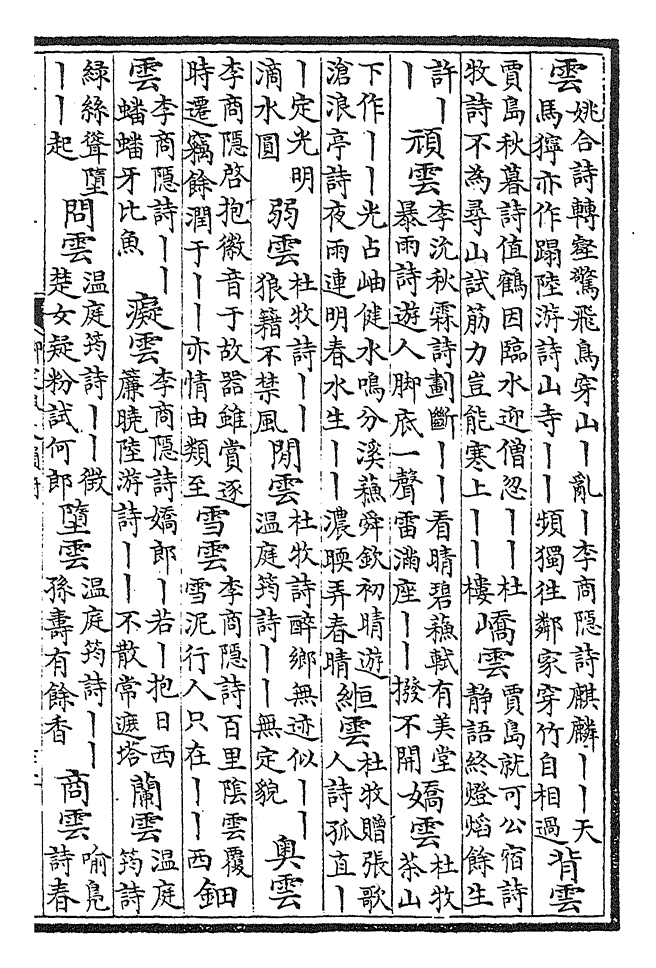 雲
姚合詩轉壑驚飛鳥穿山丨亂丨李商隱詩麒麟丨丨天
馬獰亦作蹋陸游詩山寺丨丨頻獨往鄰家穿竹自相過
背雲
賈島秋暮詩值鶴因臨水迎僧忽丨丨杜
牧詩不為尋山試筋力豈能寒上丨丨樓
嶠雲
賈島就可公宿詩
靜語終燈焰餘生
許丨
丨
頑雲
李沈秋霖詩劃斷丨丨看晴碧蘇軾有美堂
暴雨詩遊人脚底一聲雷滿座丨丨撥不開
嬌雲
杜牧
茶山
下作丨丨光占岫健水鳴分溪蘇舜欽初晴遊
滄浪亭詩夜雨連明春水生丨丨濃暖弄春晴
絙雲
杜牧贈張歌
人詩孤直丨
丨定光明
滴水圓
弱雲
杜牧詩丨丨
狼籍不禁風
閒雲
杜牧詩醉鄉無迹似丨丨
温庭筠詩丨丨無定貌
奧雲
李商隱啓抱徽音于故器雖賞逐
時遷竊餘潤于丨丨亦情由類至
雪雲
李商隱詩百里陰雲覆
雪泥行人只在丨丨西
鈿
雲
李商隱詩丨丨
蟠蟠牙比魚
癡雲
李商隱詩嬌郎丨若丨抱日西
簾曉陸游詩丨丨不散常遮塔
蘭雲
温庭
筠詩
綠絲聳墮
丨丨起
問雲
温庭筠詩丨丨徴
楚女疑粉試何郎
墮雲
温庭筠詩丨丨
孫壽有餘香
商雲
喻鳧
詩春